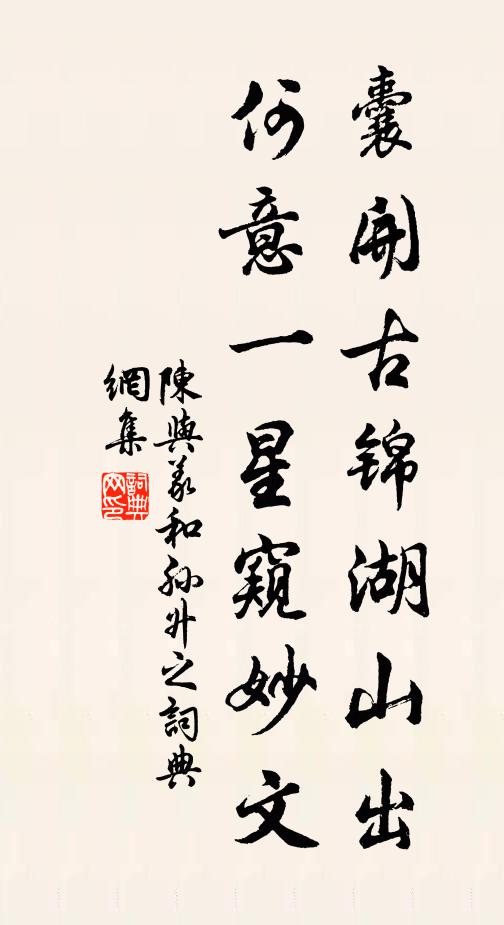 囊開古錦湖山出
何意一星窺妙文
陳與義和孫升之詞典
網集
詞典
网印